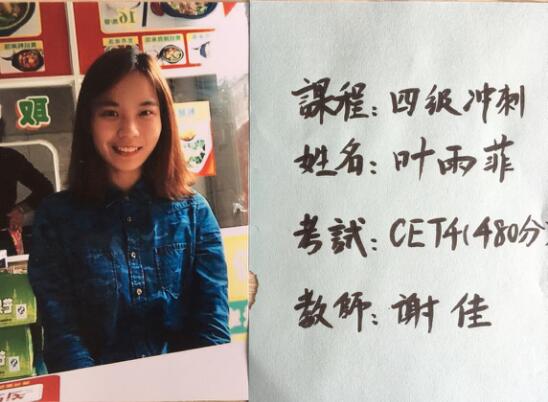 課程: 四级冲刺
姓名: 叶雨菲
考試: CET4(480分
教師: 谢佳
16